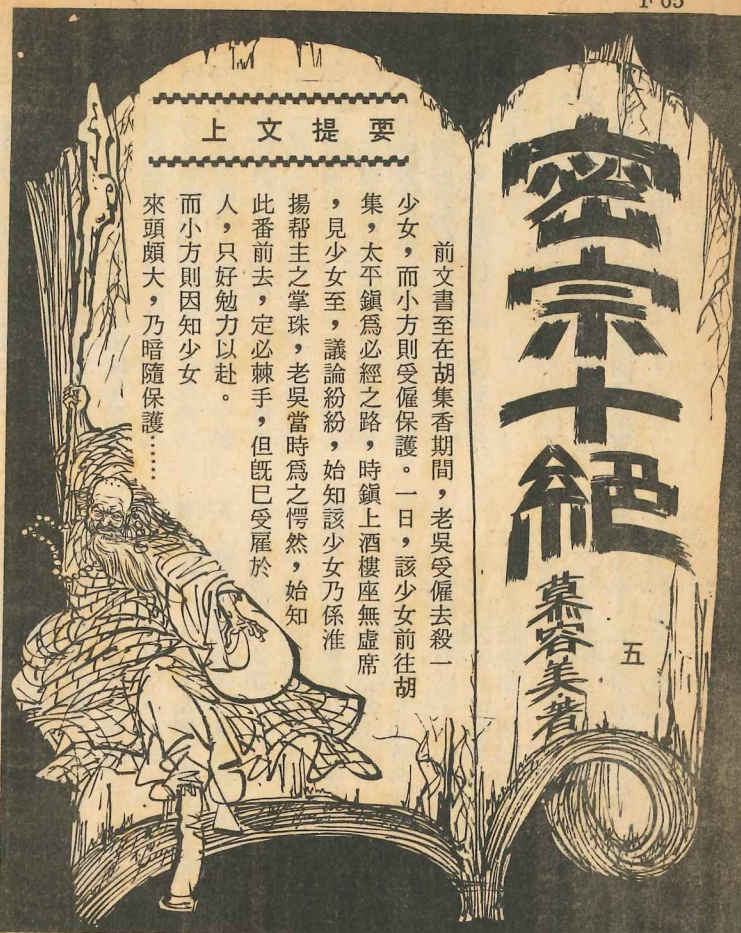 密宗十絕
五
慕容美·著
上文提要
前文書至在胡集香期間，老吳受僱去殺一
少女，而小方則受僱保護。一日，該少女前往胡
集，太平鎮爲必經之路，時鎮上酒樓座無虛席
，見少女至，議論紛紛，始知該少女乃係淮
揚帮主之掌珠，老吳當時爲之愕然，始知
此番前去，定必棘手，但既已受雇於
人，只好勉力以赴。
而小方則因知少女
來頭頗大，乃暗隨保護……